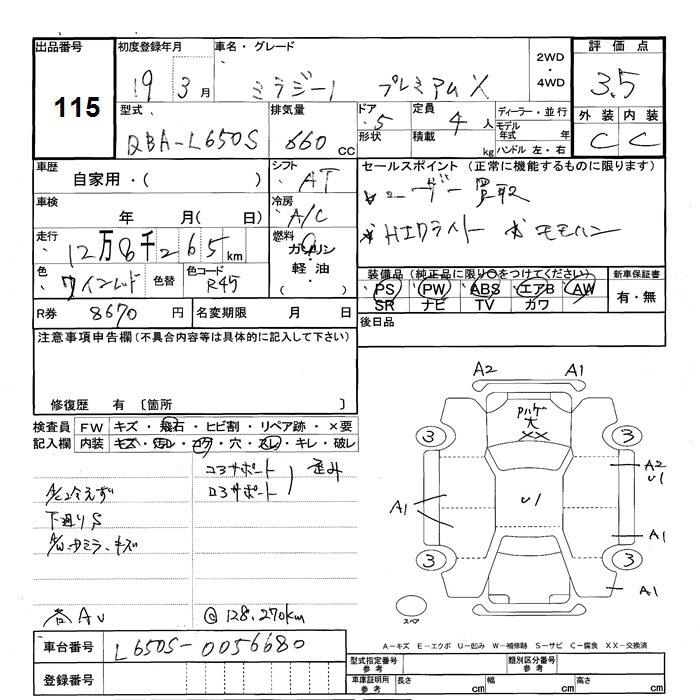 出品番号 初度登録年月 車名・グレード 2WD ・ 4WD 評価点
115 19 3月 ミラジーノ プレミアムX 3.5
型式 排気量 ドア 定員 ディーラー・並行 外装 内装
QBA-L650S 660 cc 5 4人 モデル年式 年 C C
形状 積載 kg ハンドル 左・右
車歴 シフト セールスポイント (正常に機能するものに限ります)
自家用・( ) AT ユーザー買取
車検 冷房
年 月(日) A/C HIDライト モモハン
走行 燃料
12万8千265km ガソリン
軽油
( )
色 色替 色コード 装備品(純正品に限り○をつけてください) 新車保証書
ワインレッド R45 PS PW ABS エアB AW 有・無
SR ナビ TV カワ
R券 8670円 名変期限 月 日 後日品
注意事項申告欄(不具合内容等は具体的に記入して下さい)
修復歴 有 〔箇所 〕
検査員 FW キズ・飛石・ヒビ割・リペア跡・×要
記入欄 内装 キズ・汚レ・コゲ・穴・スレ・キレ・破レ
コアサポート 歪み
ロアサポート
A/C冷えず
下廻りS
A/W・ミラ・キズ
AU @128.270km
A2 A1
Pハゲ
大
XX
3 3
A2
U1
A1 U1
A1
3 3
A1
スペア
A-キズ E-エクボ U-凹み W-補修跡 S-サビ C-腐食 XX-交換済
車台番号 L650S-0056680
登録番号
型式指定番号 参考 類別区分番号 参考
車庫証明用 参考 長さ cm 幅 cm 高さ cm